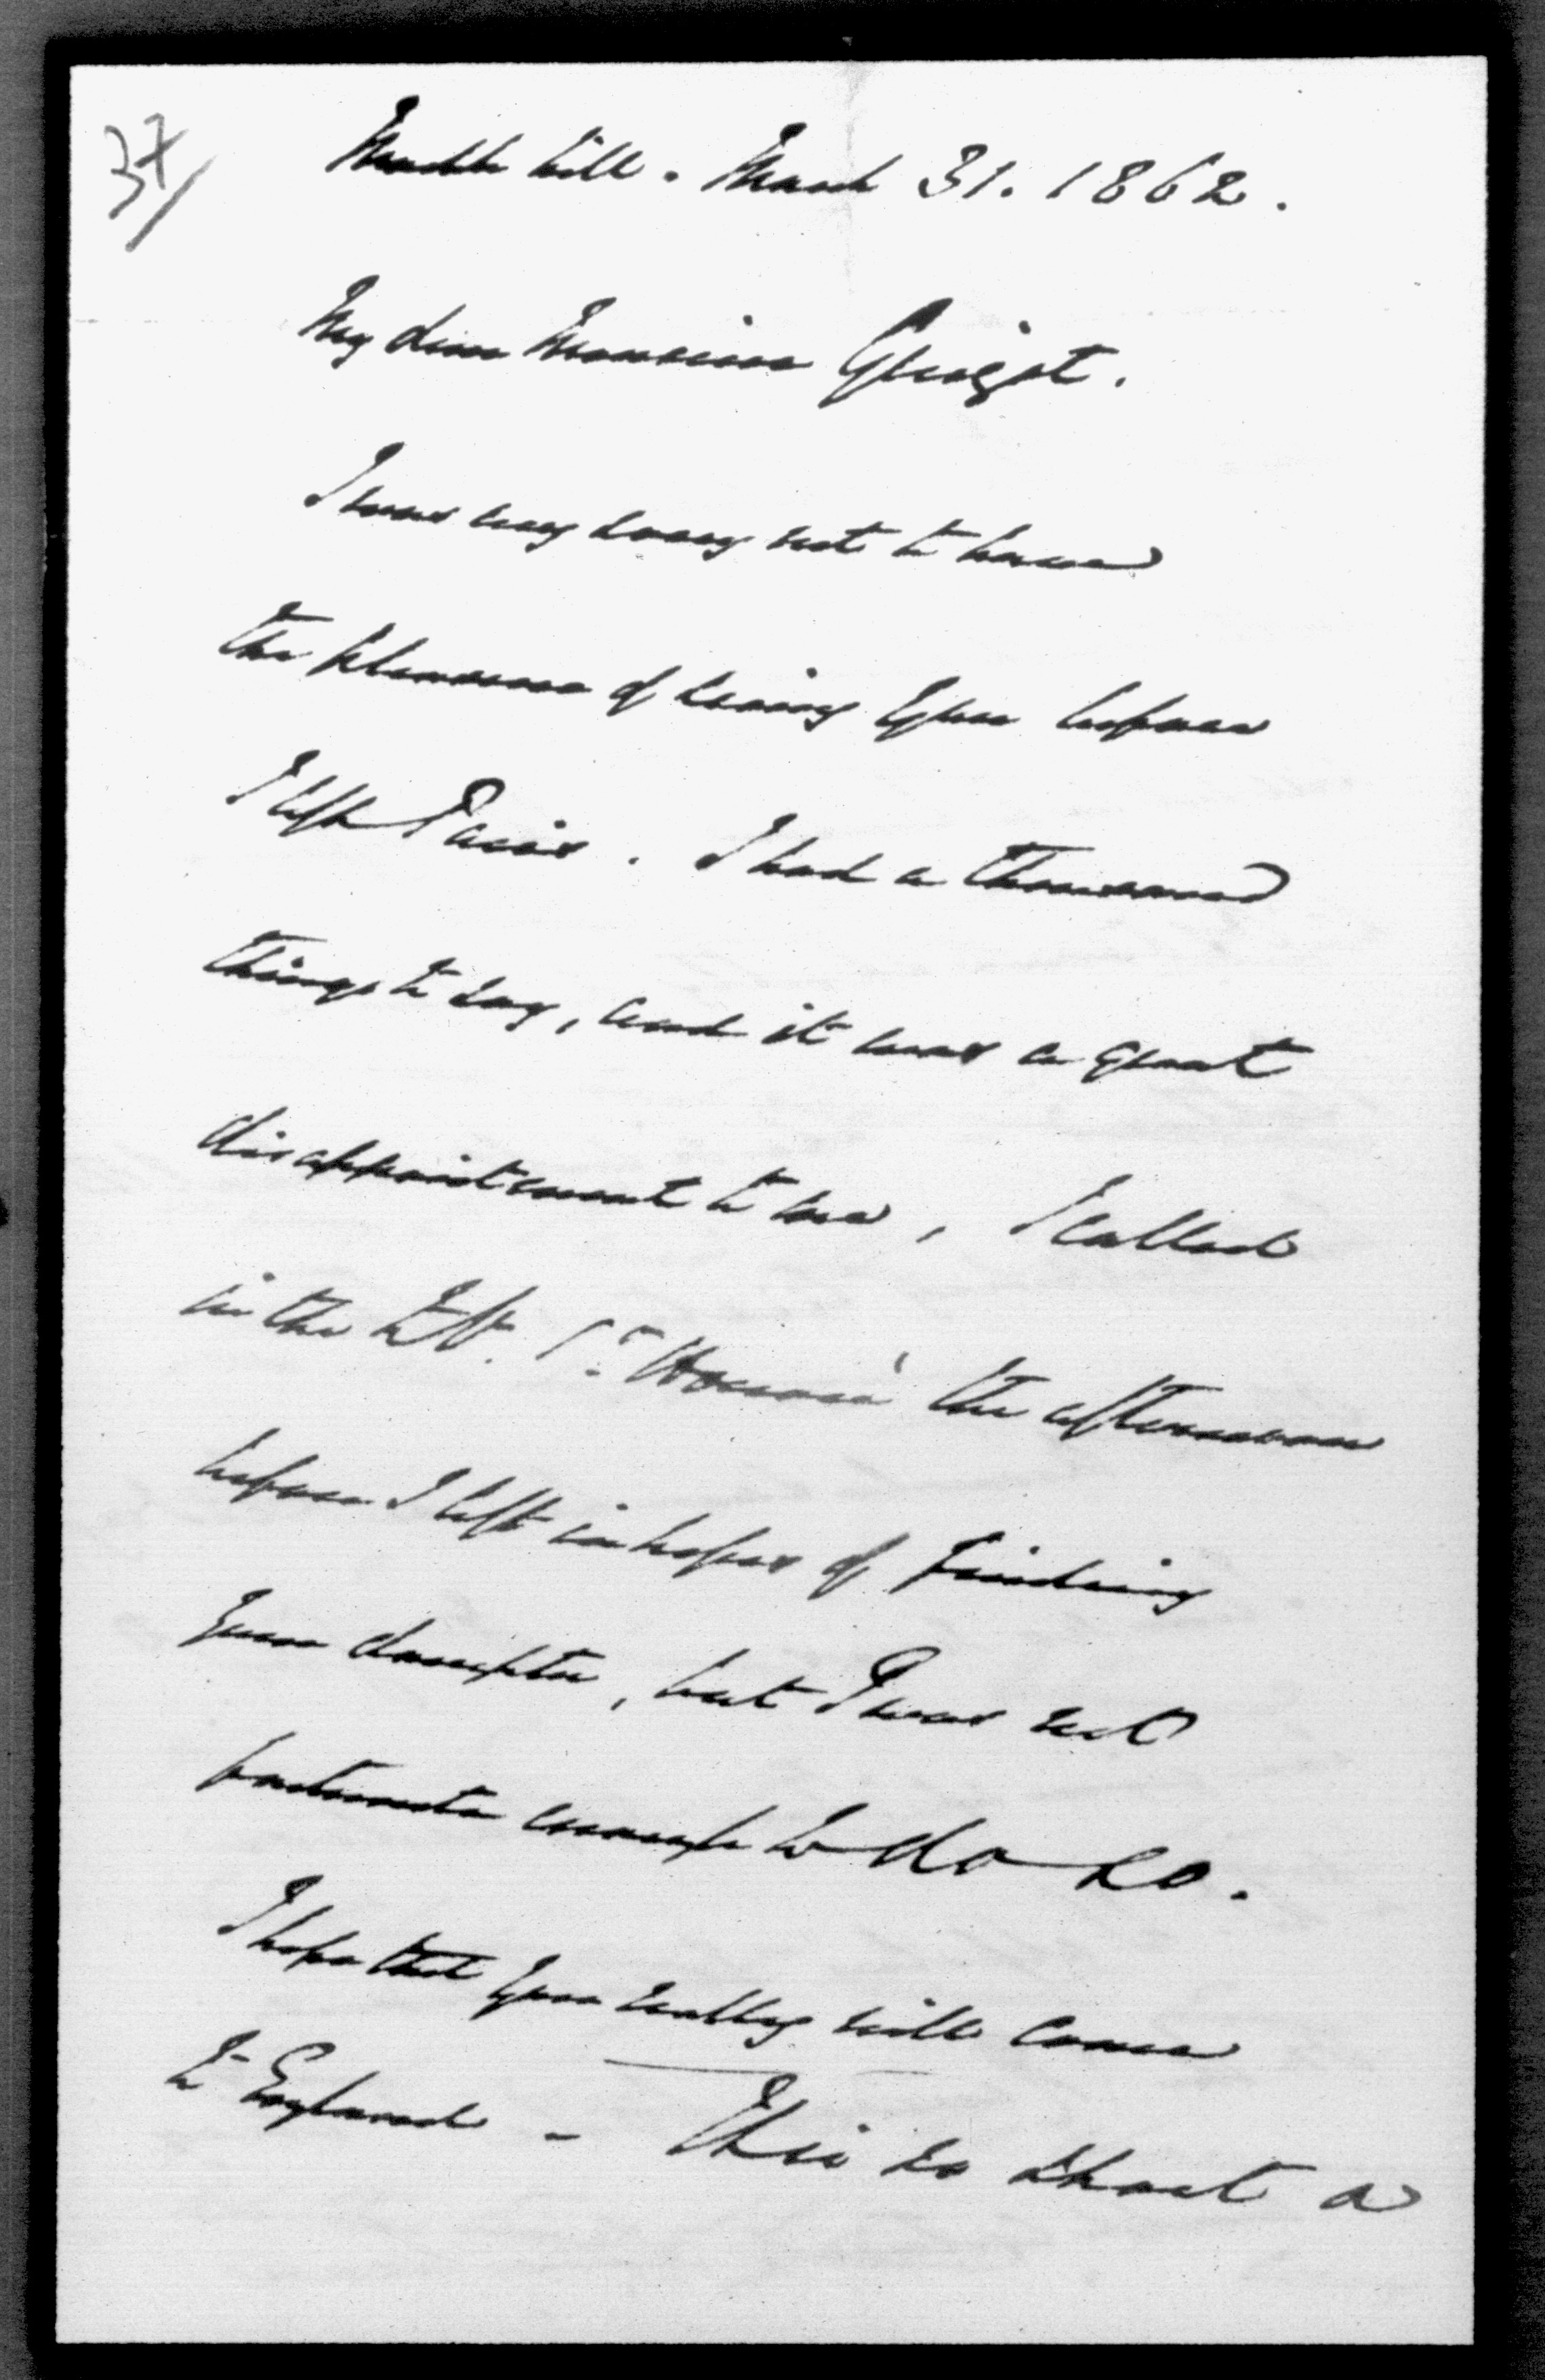 37/
hill. March 31. 1862.
My dear Monsieur Guizot.
I was very sorry not to have
the pleasure of seeing you before
I left Paris. I had a thousand
things to say, and it was a great
disappointment to me, I called
in the St. Honoré the afternoon
before I left in hopes of finding
your daughter, but I was not
fortunate enough to do so.
I hope that you really will come
to England - This so short a